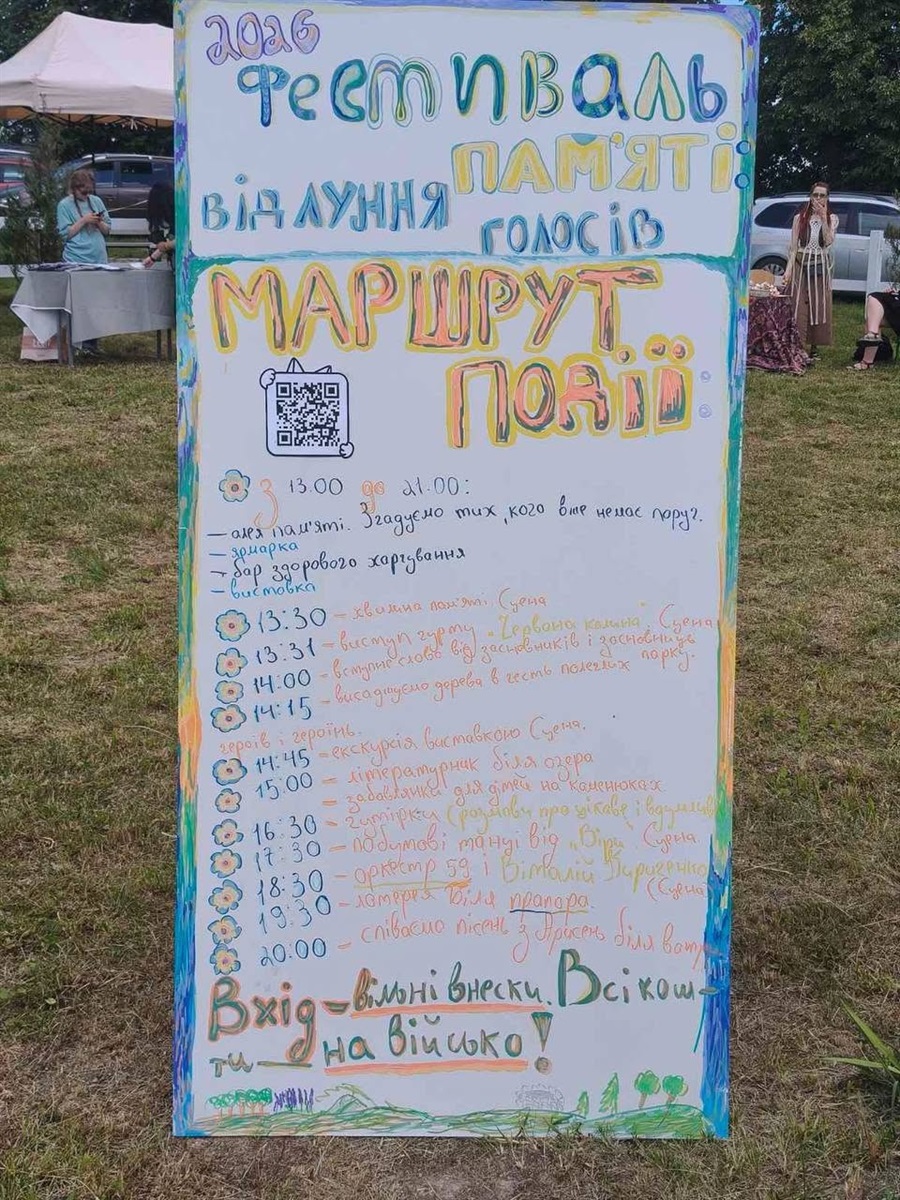 2026
Фестиваль
пам'яті:
відлуння
голосів
Маршрут
події:
З 13.00 до 21.00:
— алея пам'яті. Згадуємо тих, кого вже немає поруч.
— ярмарка
— бар здорового харчування
— виставка
13:30 – хвилина пам'яті. Сцена
13:31 – виступ гурту „Червона калина". Сцена
14:00 – вступне слово від засновників і засновниць парку.
14:15 – висаджуємо дерева в честь полеглих
героїв і героїнь.
14:45 – екскурсія виставкою Сцена.
15:00 – літературник біля озера
– забавлянки для дітей на каменюках
16:30 – гутірки (розмови про цікаве і вдумливе
17:30 – побутові танці від „Віри". Сцена.
18:30 – оркестр 59 і Віталій
(Сцена
19:30 – лотерея біля прапора.
20:00 – співаємо пісень з біля ватри
Вхід – вільні внески. Всі кош-
ти — на військо!